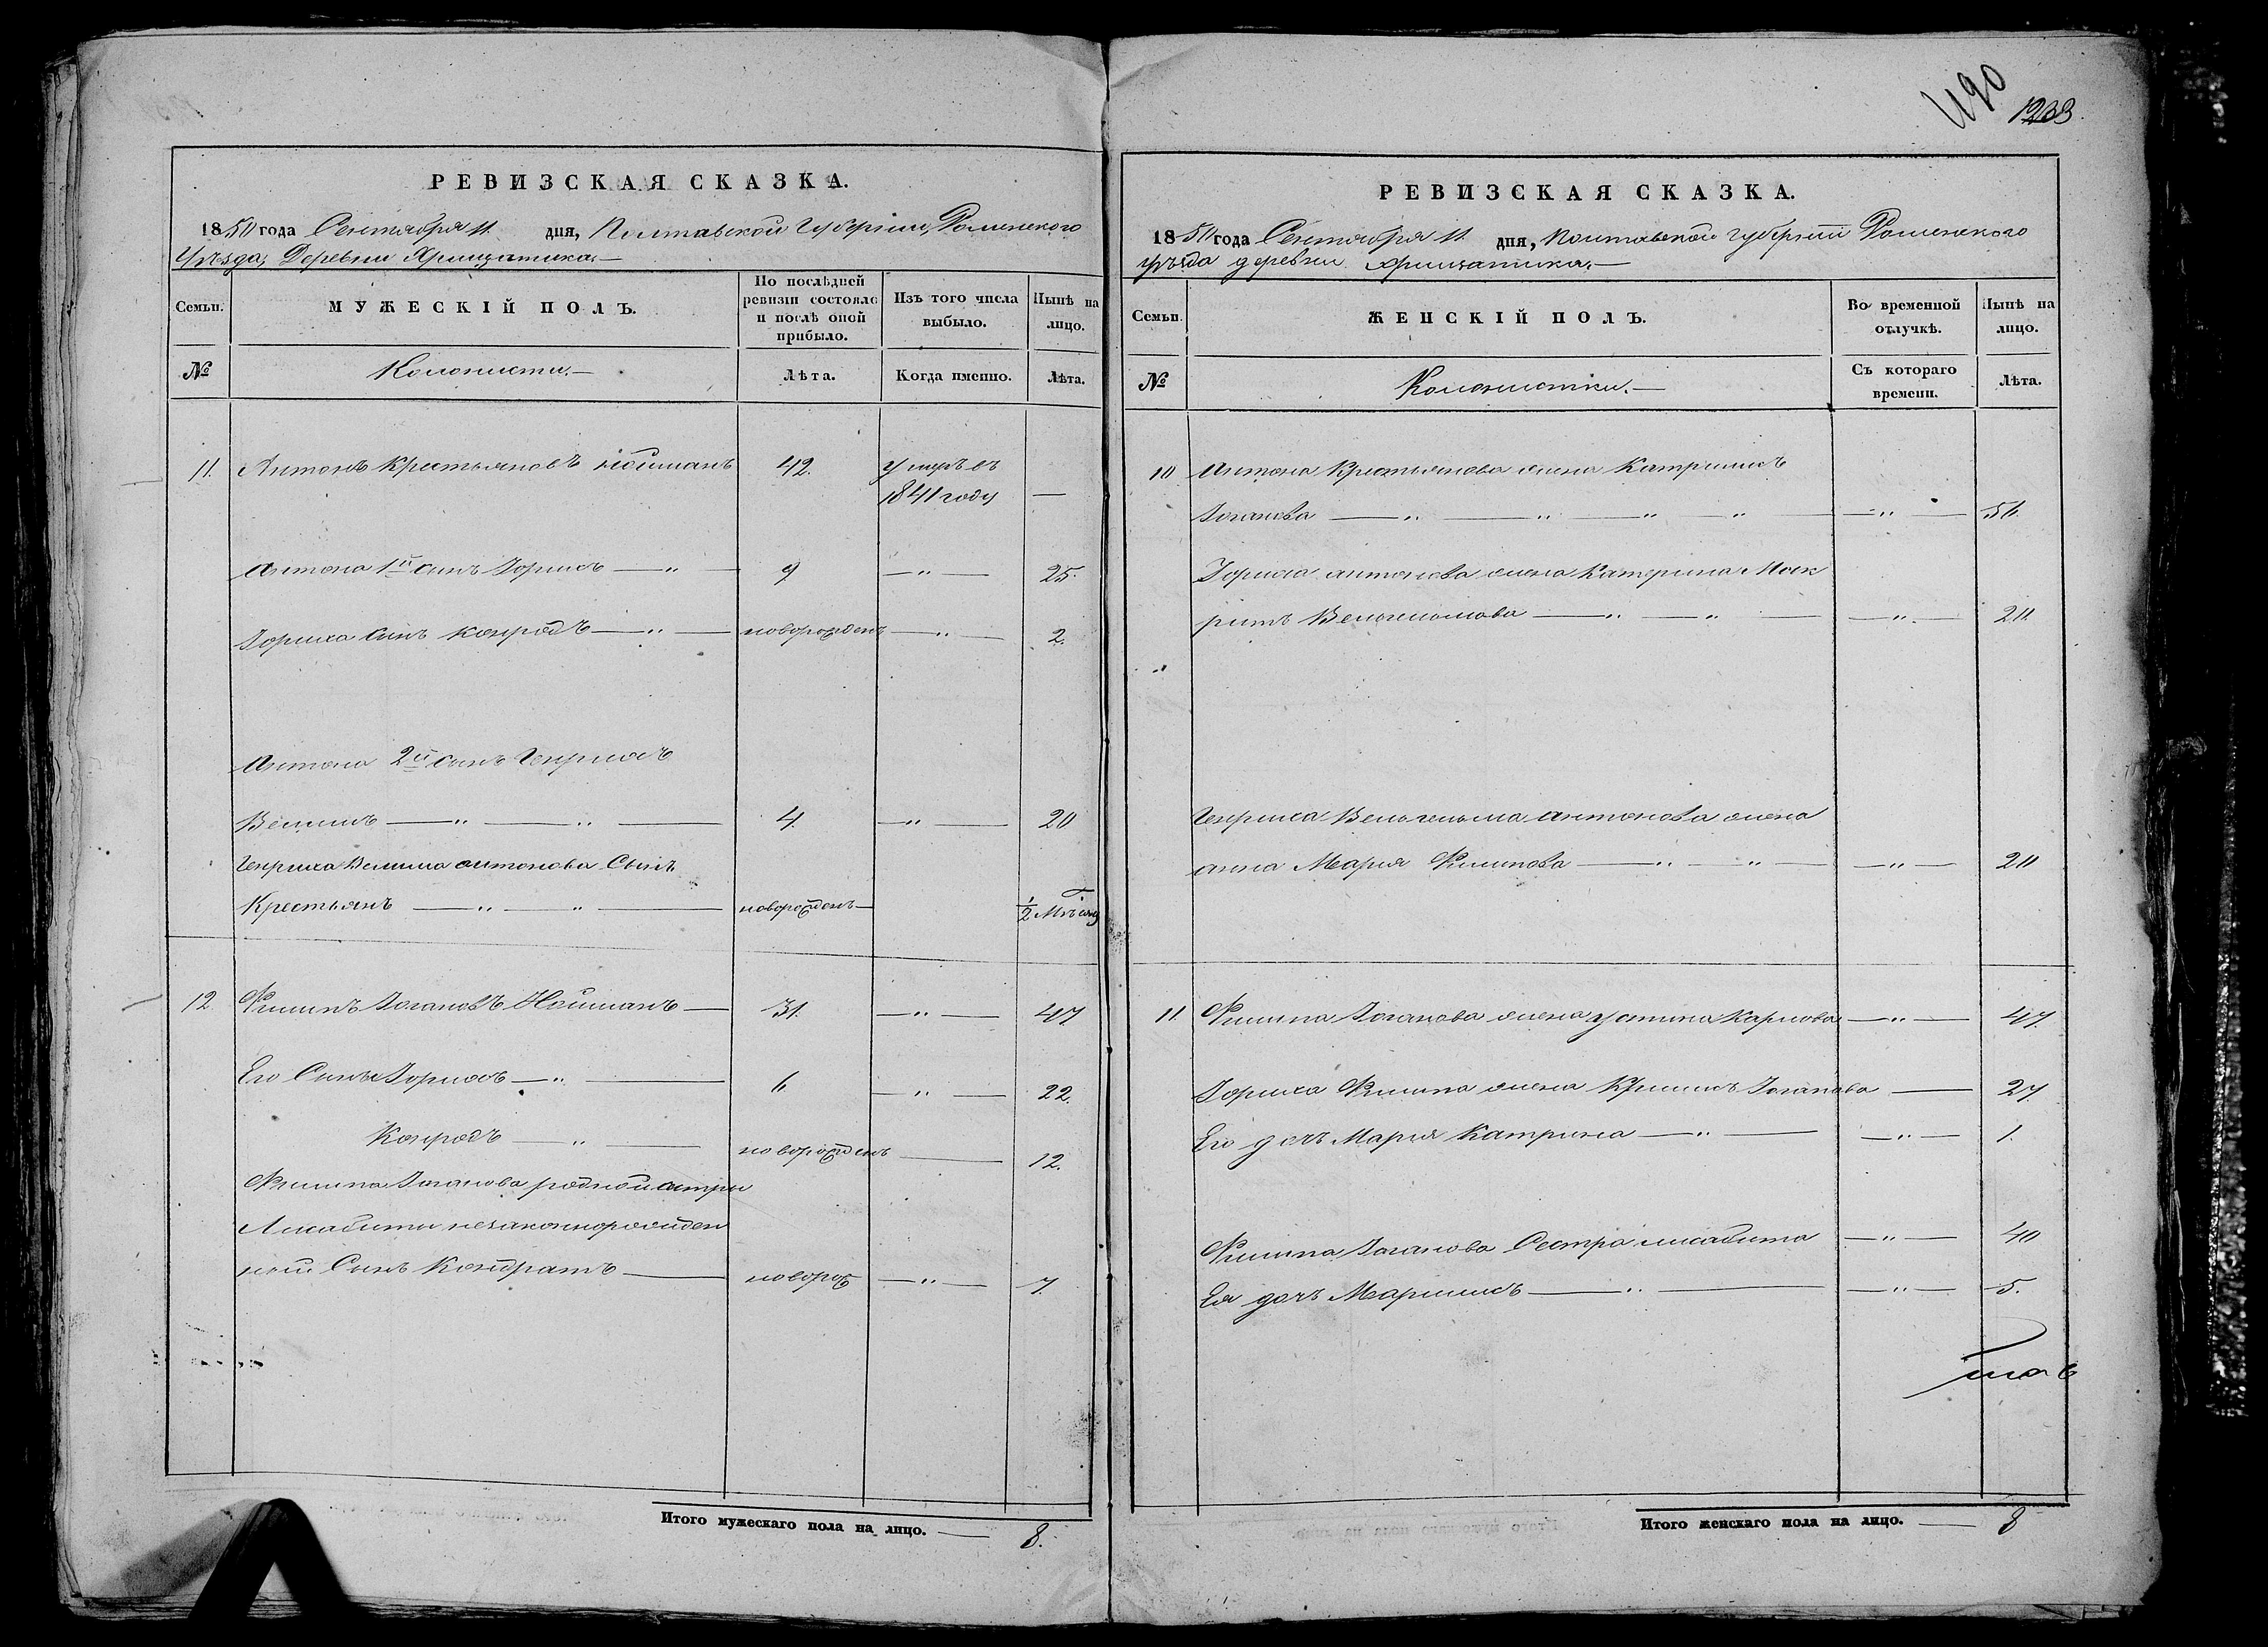 490
1233
РЕВИЗСКАЯ СКАЗКА.
1850 года Сентября 11. дня, Полтавской Губерніи, Роменского
Уѣзда, Деревни
Семьи.
МУЖЕСКІЙ ПОЛЪ.
По послѣдней ревизіи состояло и послѣ оной прибыло.
Изъ того числа выбыло.
Нынѣ на лицо.
№
Колонисти.—
Лѣта.
Когда именно.
Лѣта.
11. Антонъ Крестьяновъ Нойманъ 42. умръ въ
1841 году —
Антона 1й синъ Іорихъ — " — 9 — " — 25.
Іориха синъ Конродъ — " — новорожденъ — " — 2.
Антона 2й сынъ Генрихъ
Велимъ — " — " — 4. — " — 20
Генриха Велима антонова Сынъ
Крестьянъ — " — " — новорожденъ — 1/2 Мѣсяц
12 Филипъ Іогановъ Нойманъ — 31. — " — 47
Его Синъ Іорихъ — " — 6 — " — 22.
Конродъ — " — новорожденъ — 12.
Филипа Іоганова родной систри
Лисабити незаконнорожден
ной Синъ Кондратъ — новорож — " — 7.
Итого мужескаго пола на лицо. — 8.
РЕВИЗСКАЯ СКАЗКА.
1850 года Сентября 11. дня, Полтавской губерніи Роменского
уѣзда деревни
Семьи.
ЖЕНСКІЙ ПОЛЪ.
Во временной отлучкѣ.
Нынѣ на лицо.
№
Колонистки.—
Съ котораго времени.
Лѣта.
10 Антона Крестьянова жена Катринлисъ
Іоганова — " — " — " " — — " — 50.
Іориха антонова жена Катерина Мок
ритъ Вельгельмова — " — " — — " — 20.
Генриха Вельгельма антонова жена
анна Мария Филипова — " — " — — " — 20
11. Филипа Іоганова жена устина Карлова — " — 47.
Іориха Филипа жена Кримлисъ Іоганова — 27.
Его дочъ Мария Катрина — " — — " — 1.
Филипа Іоганова Сестра лисабита — " — 40
Ея дочъ Марилисъ — " — — " — 5.
Итого женскаго пола на лицо. — 8